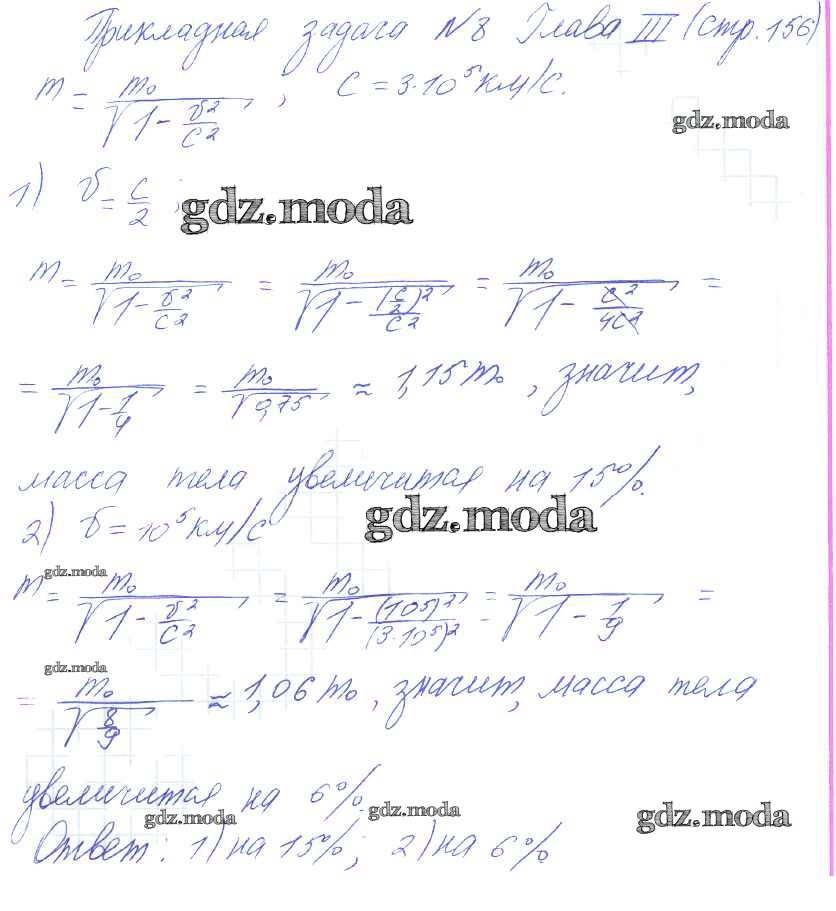 Прикладная задача №8 Глава III (стр. 156)
m = m₀/√(1 - v²/c²), c = 3·10⁵ км/с.
gdz.moda
1) v = c/2; gdz.moda
m = m₀/√(1 - v²/c²) = m₀/√(1 - (c/2)²/c²) = m₀/√(1 - c²/4c²) =
= m₀/√(1 - 1/4) = m₀/√0,75 ≈ 1,15 m₀, значит,
масса тела увеличится на 15%.
2) v = 10⁵ км/с gdz.moda
gdz.moda
m = m₀/√(1 - v²/c²) = m₀/√(1 - (10⁵)²/(3·10⁵)²) = m₀/√(1 - 1/9) =
gdz.moda
= m₀/√(8/9) ≈ 1,06 m₀, значит, масса тела
увеличится на 6%.
gdz.moda gdz.moda gdz.moda
Ответ: 1) на 15%; 2) на 6%